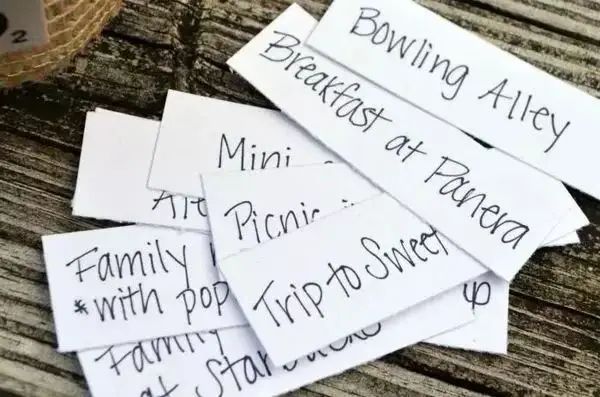 2
Bowling Alley
Breakfast at Panera
Mini
Picnic
Trip to Sweet
Family
*with pop
up
Family
at Star